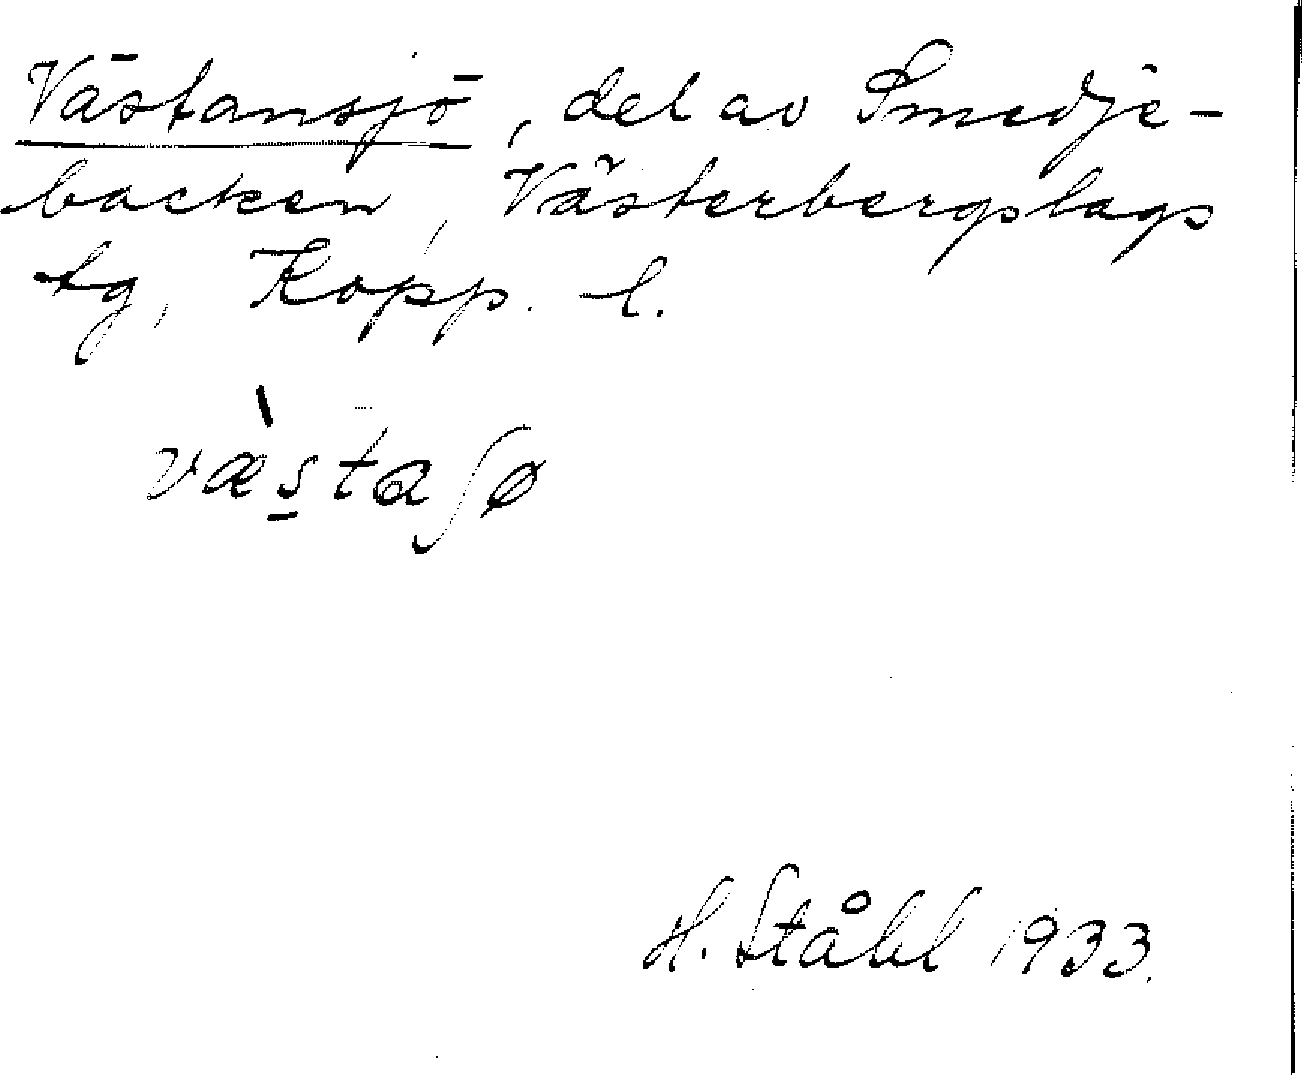 Västansjö, del av Smedje-
backen, Västerbergslags
tg, Kopp. l.
væ̀s̲taʃø
H. Ståhl 1933.